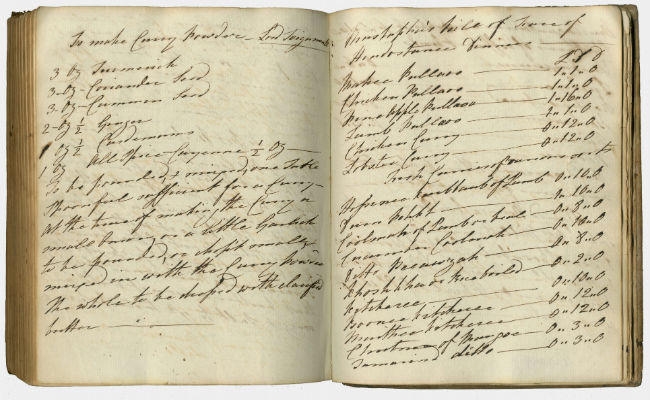 To make Curry Powder - Lord Teignmouth
3 Oz Turmerick
3 - Oz - Coriander Seed
3. Oz - Cummin Seed
2 - Oz 1/2 Ginger
1 Oz 1/2 Cardemoms
1 Oz All Spice Cayenne 1/2 Oz
To be pounded & mixed, one Table
Spoonful sufficient for a Curry -
at the time of making the Curry a
small Onion, or a little Garlick
to be pounded, or chopt small &
mixed in with the Curry Powder
The whole to be dressed with clarified
butter
Bill of Fare of
Hindostanee Dinner
£ S D
Makee Pullaoo 1 " 1 " 0
Chicken Pullaoo 1 " 1 " 0
Pine Apple Pullaoo 1 " 16 " 0
Lamb Pullaoo 1 " 1 " 0
Chicken Curry 0 " 12 " 0
Lobster Curry 0 " 12 " 0
of Lamb 0 " 10 " 0
1 " 10 " 0
Coolmah of Lamb or 0 " 8 " 0
Coolmah 0 " 18 " 0
Ditto 0 " 8 " 0
or Rice boiled 0 " 2 " 0
Kitcheree 0 " 10 " 0
Kitcheree 0 " 12 " 0
Kitcheree 0 " 12 " 0
of Mangoe 0 " 3 " 0
Tamarind ditto 0 " 3 " 0